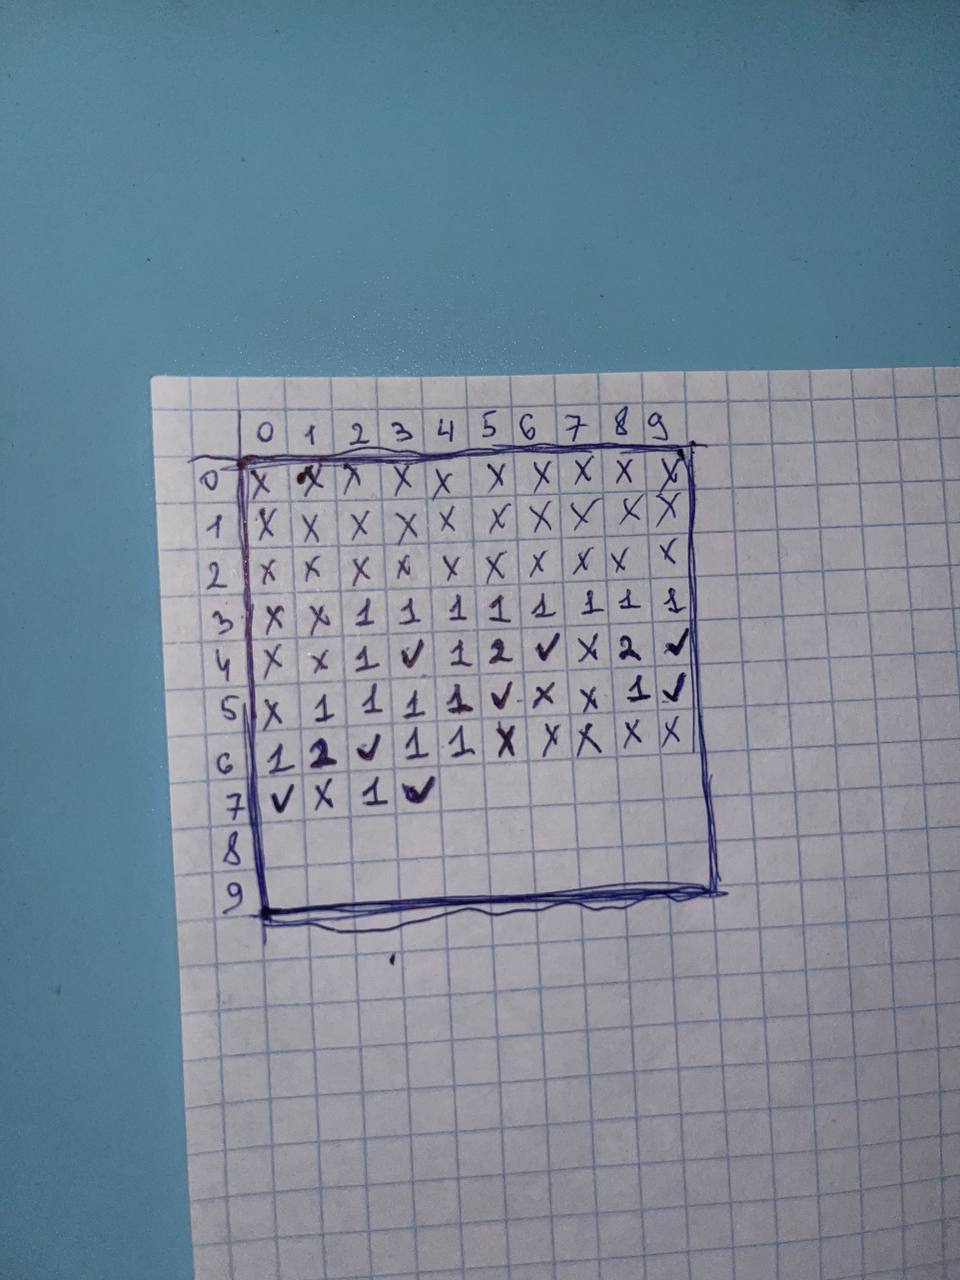 0 1 2 3 4 5 6 7 8 9
0 X X X X X X X X X X
1 X X X X X X X X X X
2 X X X X X X X X X X
3 X X 1 1 1 1 1 1 1 1
4 X X 1 ✓ 1 2 ✓ X 2 ✓
5 X 1 1 1 1 ✓ X X 1 ✓
6 1 2 ✓ 1 1 X X X X X
7 ✓ X 1 ✓
8
9